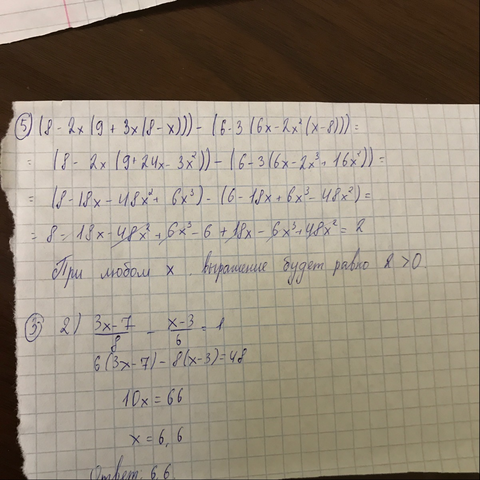 ⑤ (8 - 2x (9 + 3x (8 - x))) - (6 - 3 (6x - 2x² (x - 8))) =
= (8 - 2x (9 + 24x - 3x²)) - (6 - 3 (6x - 2x³ + 16x²)) =
= (8 - 18x - 48x² + 6x³) - (6 - 18x + 6x³ - 48x²) =
= 8 - 18x - 48x² + 6x³ - 6 + 18x - 6x³ + 48x² = 2
При любом x выражение будет равно 2 > 0.
③ 2) (3x - 7)/8 - (x - 3)/6 = 1
6(3x - 7) - 8(x - 3) = 48
10x = 66
x = 6,6
Ответ: 6,6